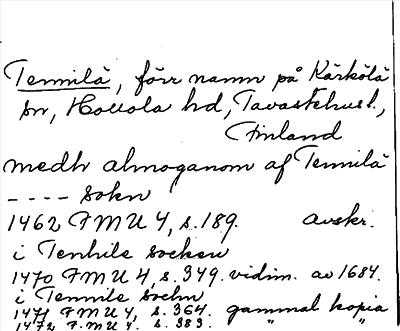 Tennilä, förr namn på Kärkölä
sn, Hollola hd, Tavastehusl.,
Finland
medh almoganom af Tennilä
---- sokn
1462 FMU 4, s. 189. avskr.
i Tenhile socken
1470 FMU 4, s. 349. vidim. av 1684.
i Tennile sochn
1471 FMU 4, s. 364. gammal kopia
1472 FMU 4, s. 383. " "